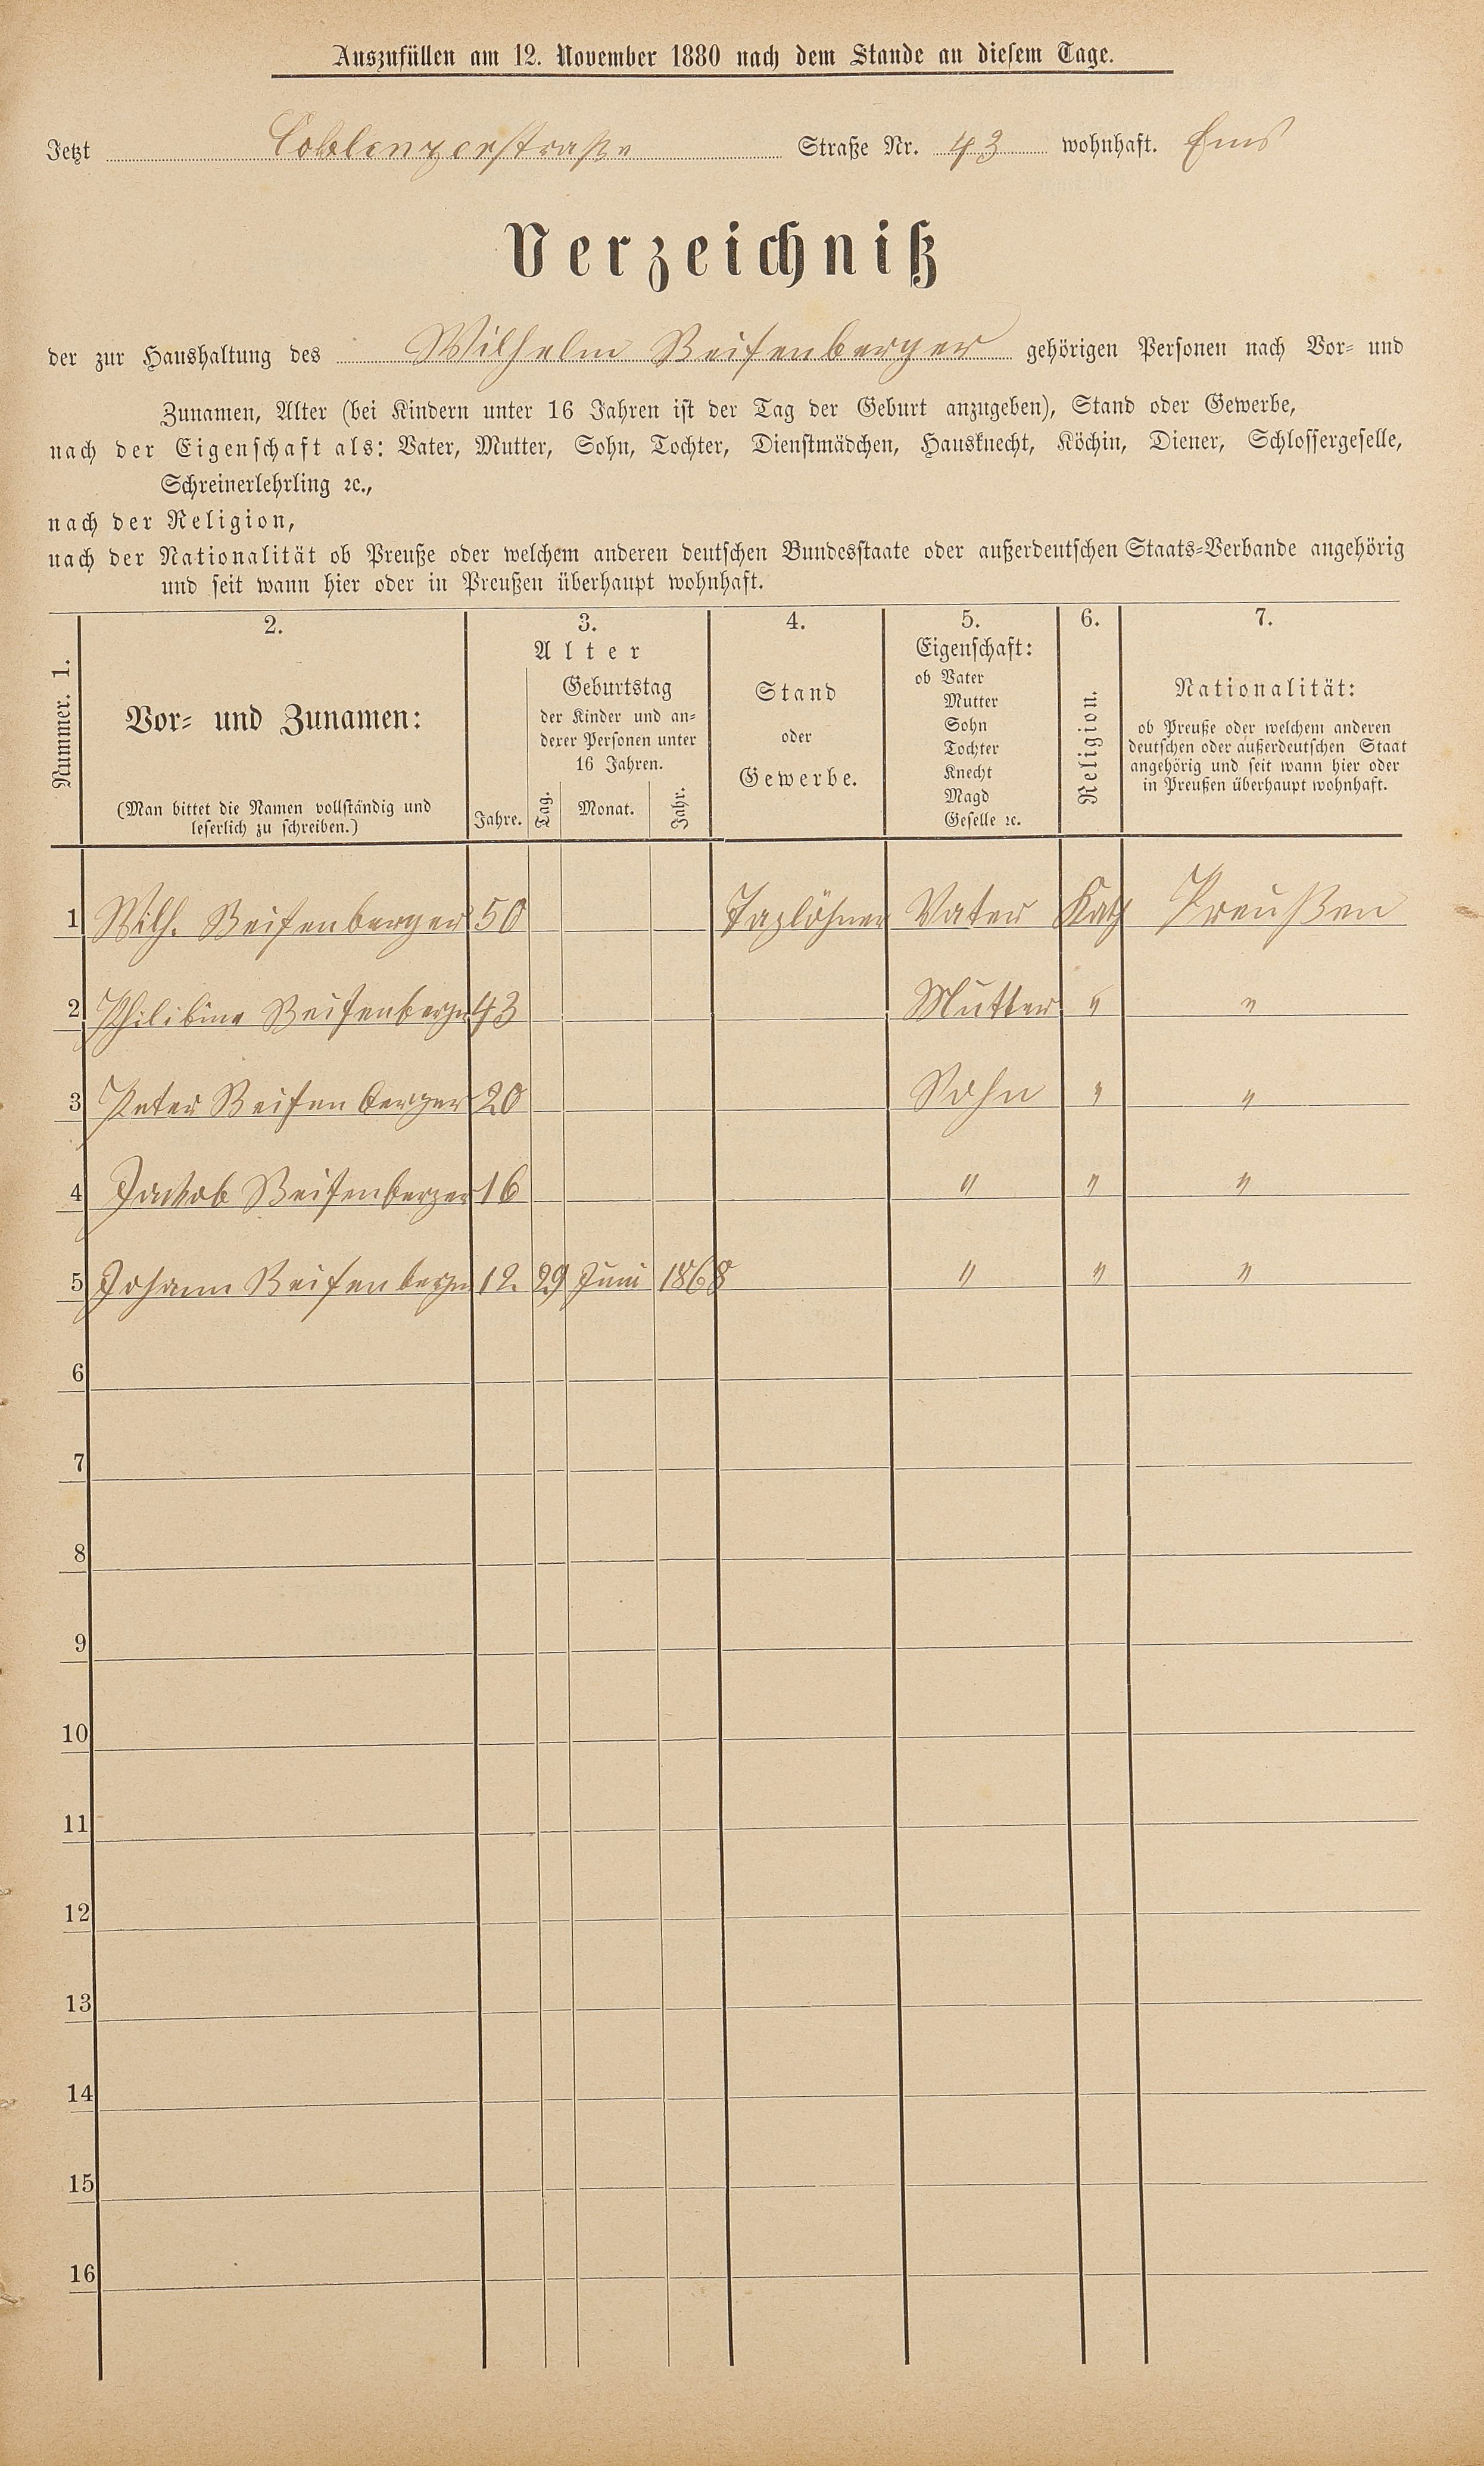 Auszufüllen am 12. November 1880 nach dem Stande an diesem Tage.
Jetzt Coblenzerstraße Straße Nr. 43 wohnhaft. Ems
Verzeichniß
der zur Haushaltung des Wilhelm Reifenberger gehörigen Personen nach Vor- und
Zunamen, Alter (bei Kindern unter 16 Jahren ist der Tag der Geburt anzugeben), Stand oder Gewerbe,
nach der Eigenschaft als: Vater, Mutter, Sohn, Tochter, Dienstmädchen, Hausknecht, Köchin, Diener, Schlossergeselle,
Schreinerlehrling ꝛc.,
nach der Religion,
nach der Nationalität ob Preuße oder welchem anderen deutschen Bundesstaate oder außerdeutschen Staats-Verbande angehörig
und seit wann hier oder in Preußen überhaupt wohnhaft.
Nummer. 1.
2.
Vor- und Zunamen:
(Man bittet die Namen vollständig und
leserlich zu schreiben.)
3.
Alter
Jahre.
Geburtstag
der Kinder und an-
derer Personen unter
16 Jahren.
Tag.
Monat.
Jahr.
4.
Stand
oder
Gewerbe.
5.
Eigenschaft:
ob Vater
Mutter
Sohn
Tochter
Knecht
Magd
Geselle ꝛc.
6.
Religion.
7.
Nationalität:
ob Preuße oder welchem anderen
deutschen oder außerdeutschen Staat
angehörig und seit wann hier oder
in Preußen überhaupt wohnhaft.
1 Wilh. Reifenberger 50 Taglöhner Vater Kath Preußen
2 Philibine Reifenberger 43 Mutter " "
3 Peter Reifenberger 20 Sohn " "
4 Jackob Reifenberger 16 " " "
5 Johann Reifenberger 12. 29 Juni 1868 " " "
6
7
8
9
10
11
12
13
14
15
16